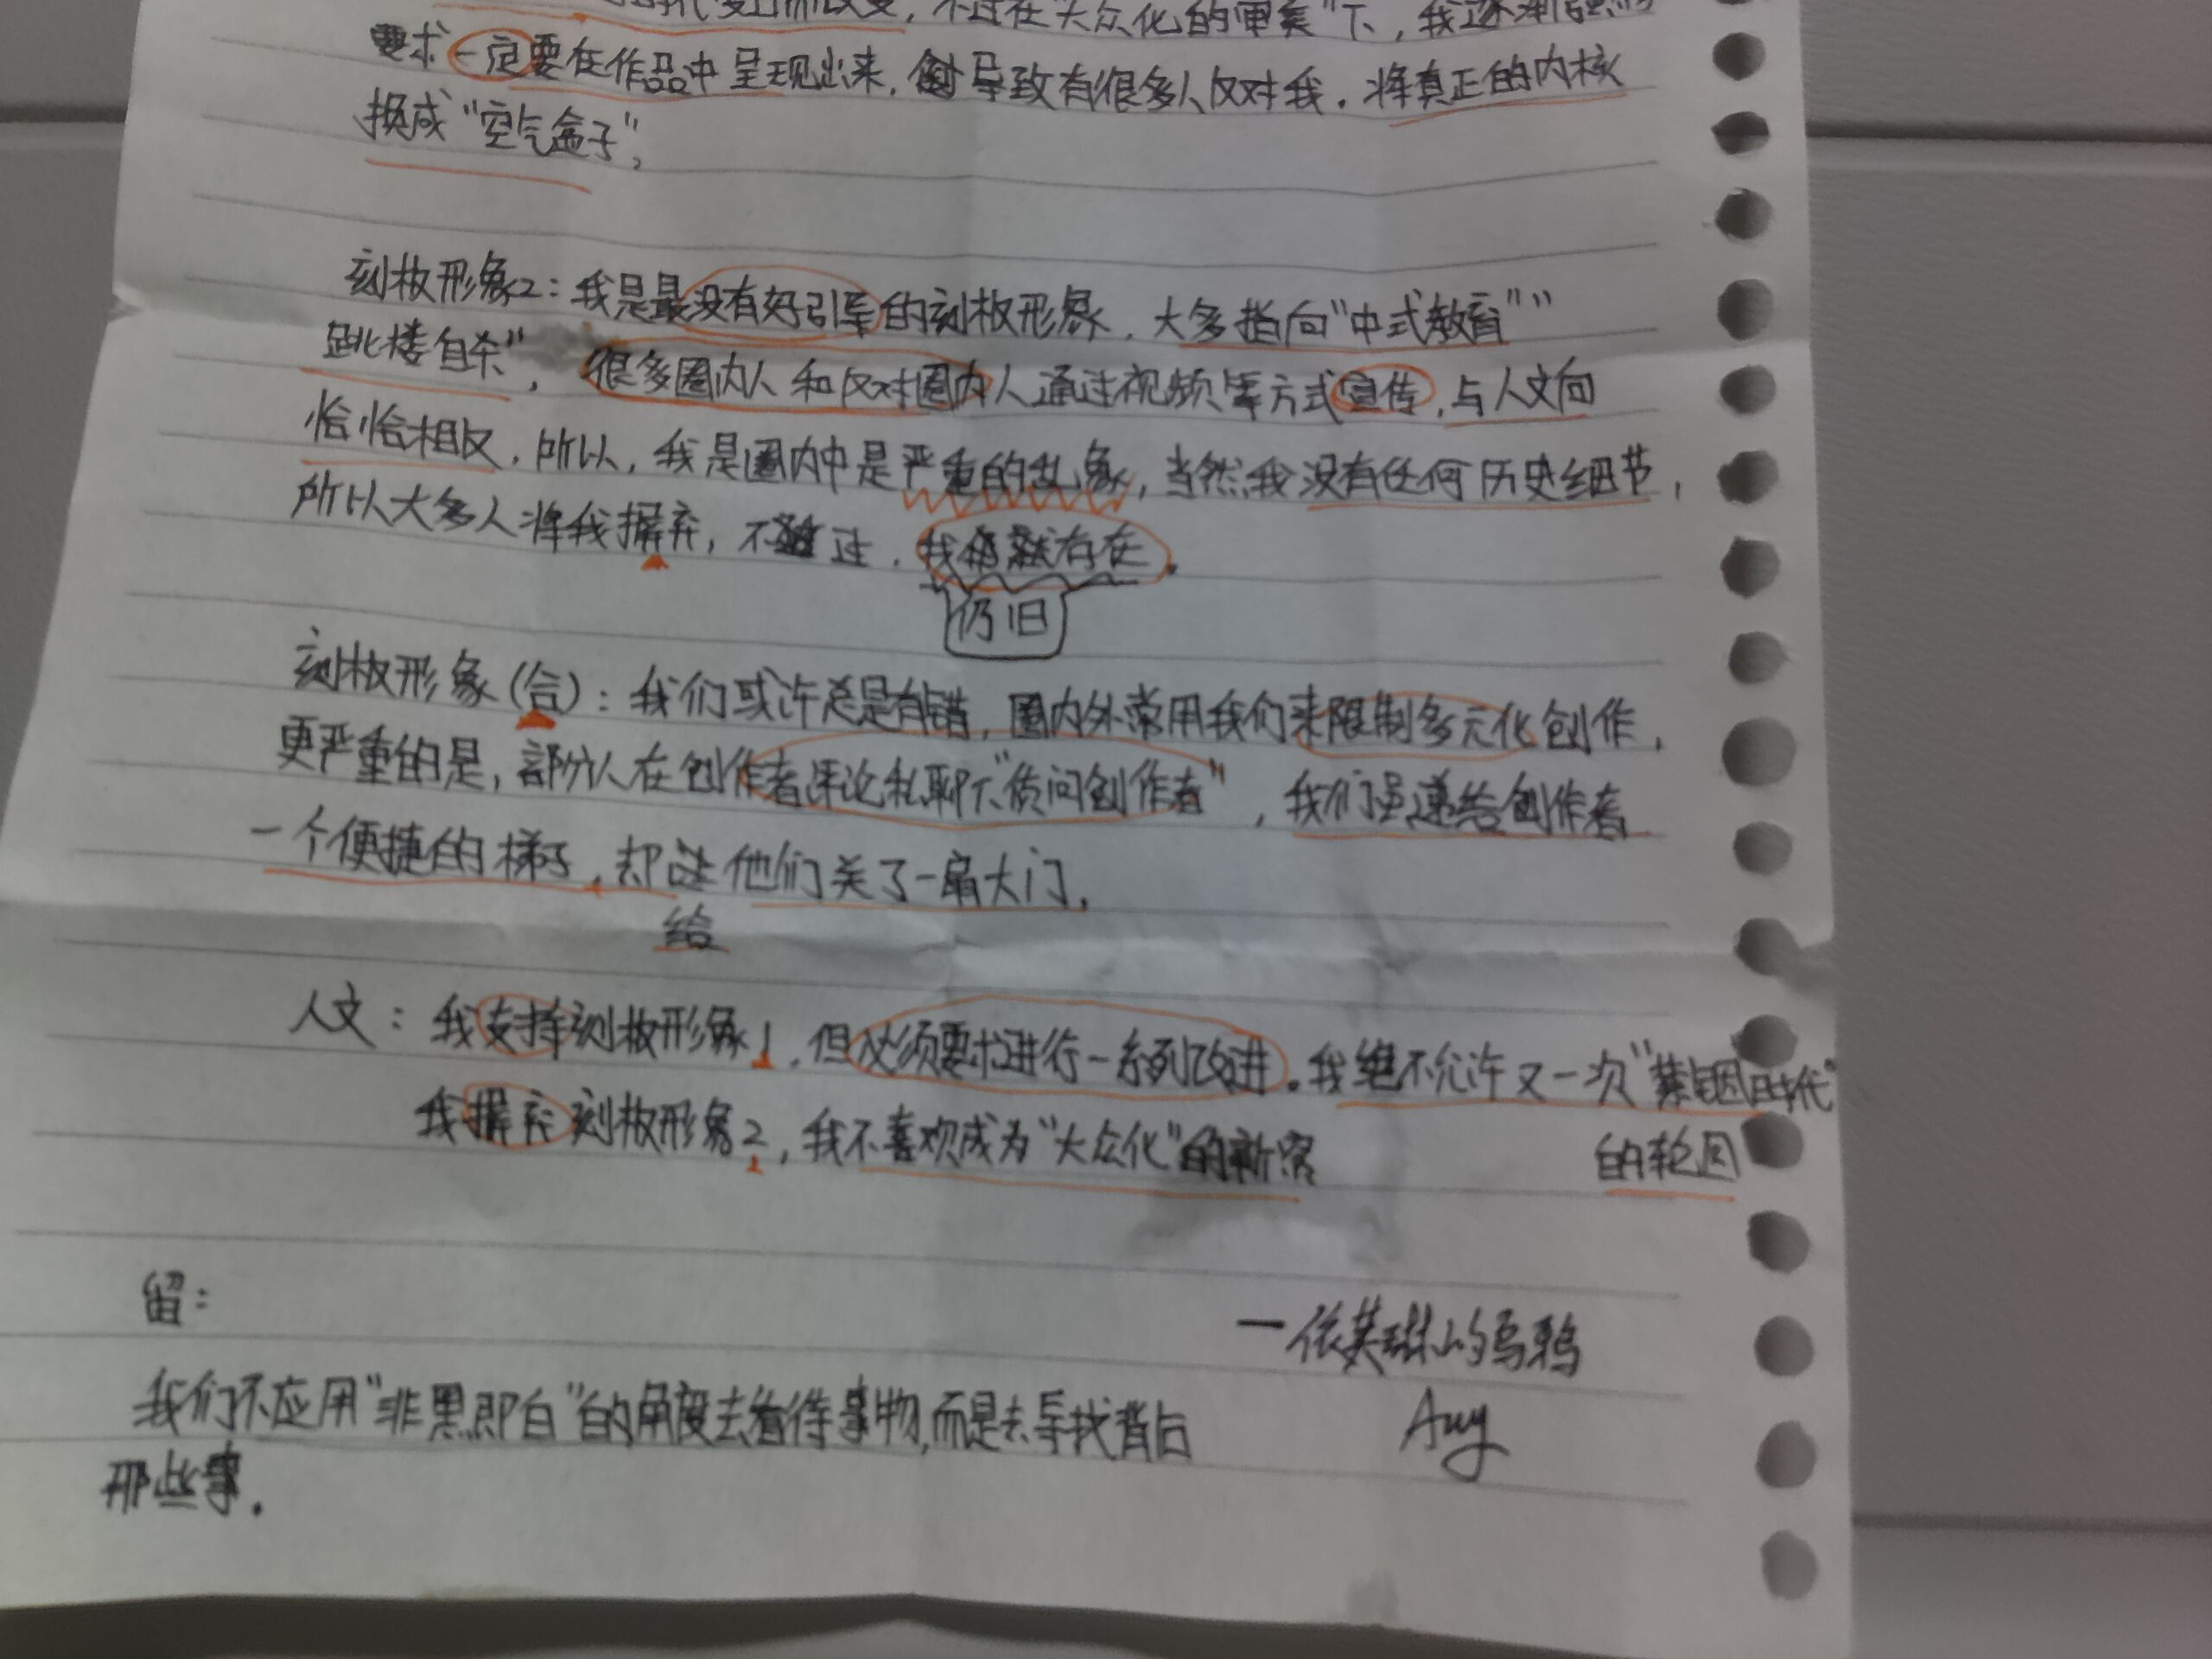 不过在"大众化的审美"下，我逐渐
要求一定要在作品中呈现出来，导致有很多人反对我，将真正的内核
换成"空气盒子"，
刻板形象2：我是最没有好引导的刻板形象，大多指向"中式教育""
跳楼自杀"，很多圈内人和反对圈内人通过视频等方式宣传，与人文向
恰恰相反，所以，我是圈内中是严重的乱象，当然我没有任何历史细节，
所以大多人将我摒弃，不过，我存在。
仍旧
刻板形象（合）：我们或许总是有错，圈内外常用我们来限制多元化创作，
更严重的是，部分人在创作者评论私聊下"质问创作者"，我们虽递给创作者
一个便捷的梯子，却让他们关了一扇大门。
给
人文：我支持刻板形象1，但必须要求进行一系列改进。我绝不允许又一次"禁锢时代"
的轮回
我摒弃刻板形象2，我不喜欢成为"大众化"的新
留：
一依英琳的乌鸦
我们不应用"非黑即白"的角度去看待事物，而是去寻找背后
Amy
那些事。